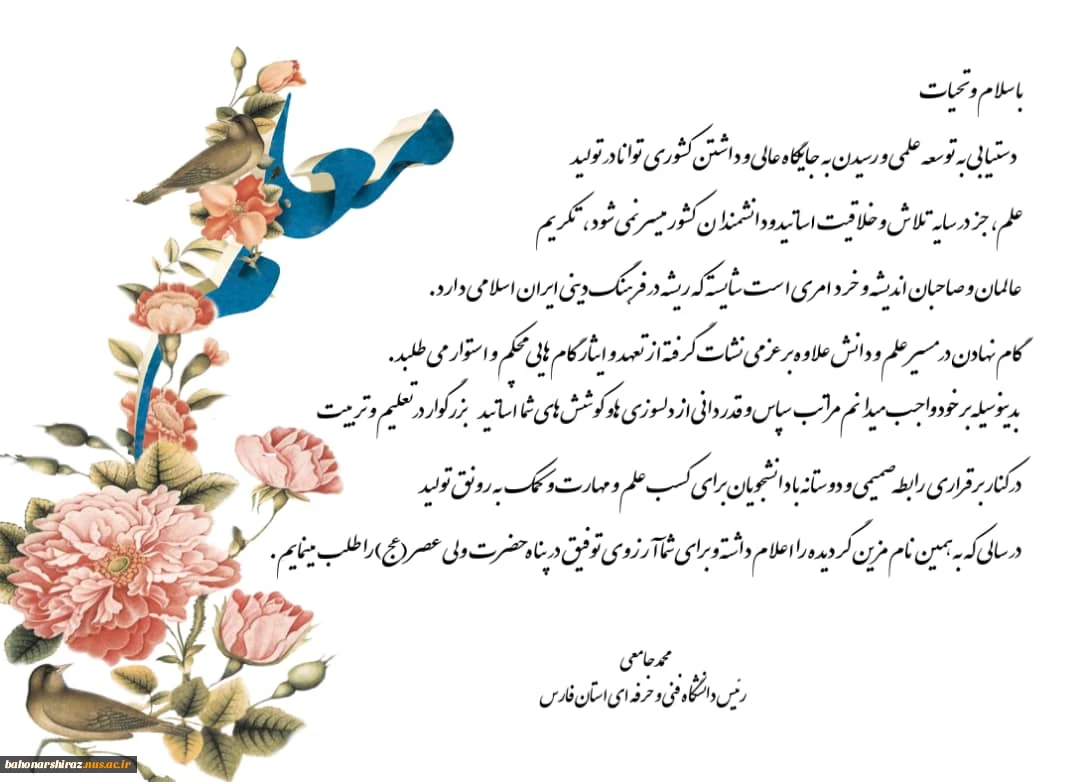 باسلام و تحیات
دستیابی به توسعه علمی و رسیدن به جایگاه عالی و داشتن کشوری توانا در تولید
علم، جز در سایه تلاش و خلاقیت اساتید و دانشمندان کشور میسر نمی شود، تکریم
عالمان و صاحبان اندیشه و خرد امری است شایسته که ریشه در فرهنگ دینی ایران اسلامی دارد.
گام نهادن در مسیر علم و دانش علاوه بر عزمی نشات گرفته از تعهد و ایثار گام هایی محکم و استوار می طلبد.
بدینوسیله بر خود واجب میدانم مراتب سپاس و قدردانی از دلسوزی ها و کوشش های شما اساتید بزرگوار در تعلیم و تربیت
در کنار برقراری رابطه صمیمی و دوستانه با دانشجویان برای کسب علم و مهارت و کمک به رونق تولید
در سالی که به همین نام مزین گردیده را اعلام داشته و برای شما آرزوی توفیق در پناه حضرت ولی عصر(عج) را طلب مینمایم.
محمد جامعی
رئیس دانشگاه فنی و حرفه ای استان فارس
معلم
bahonarshiraz.nus.ac.ir